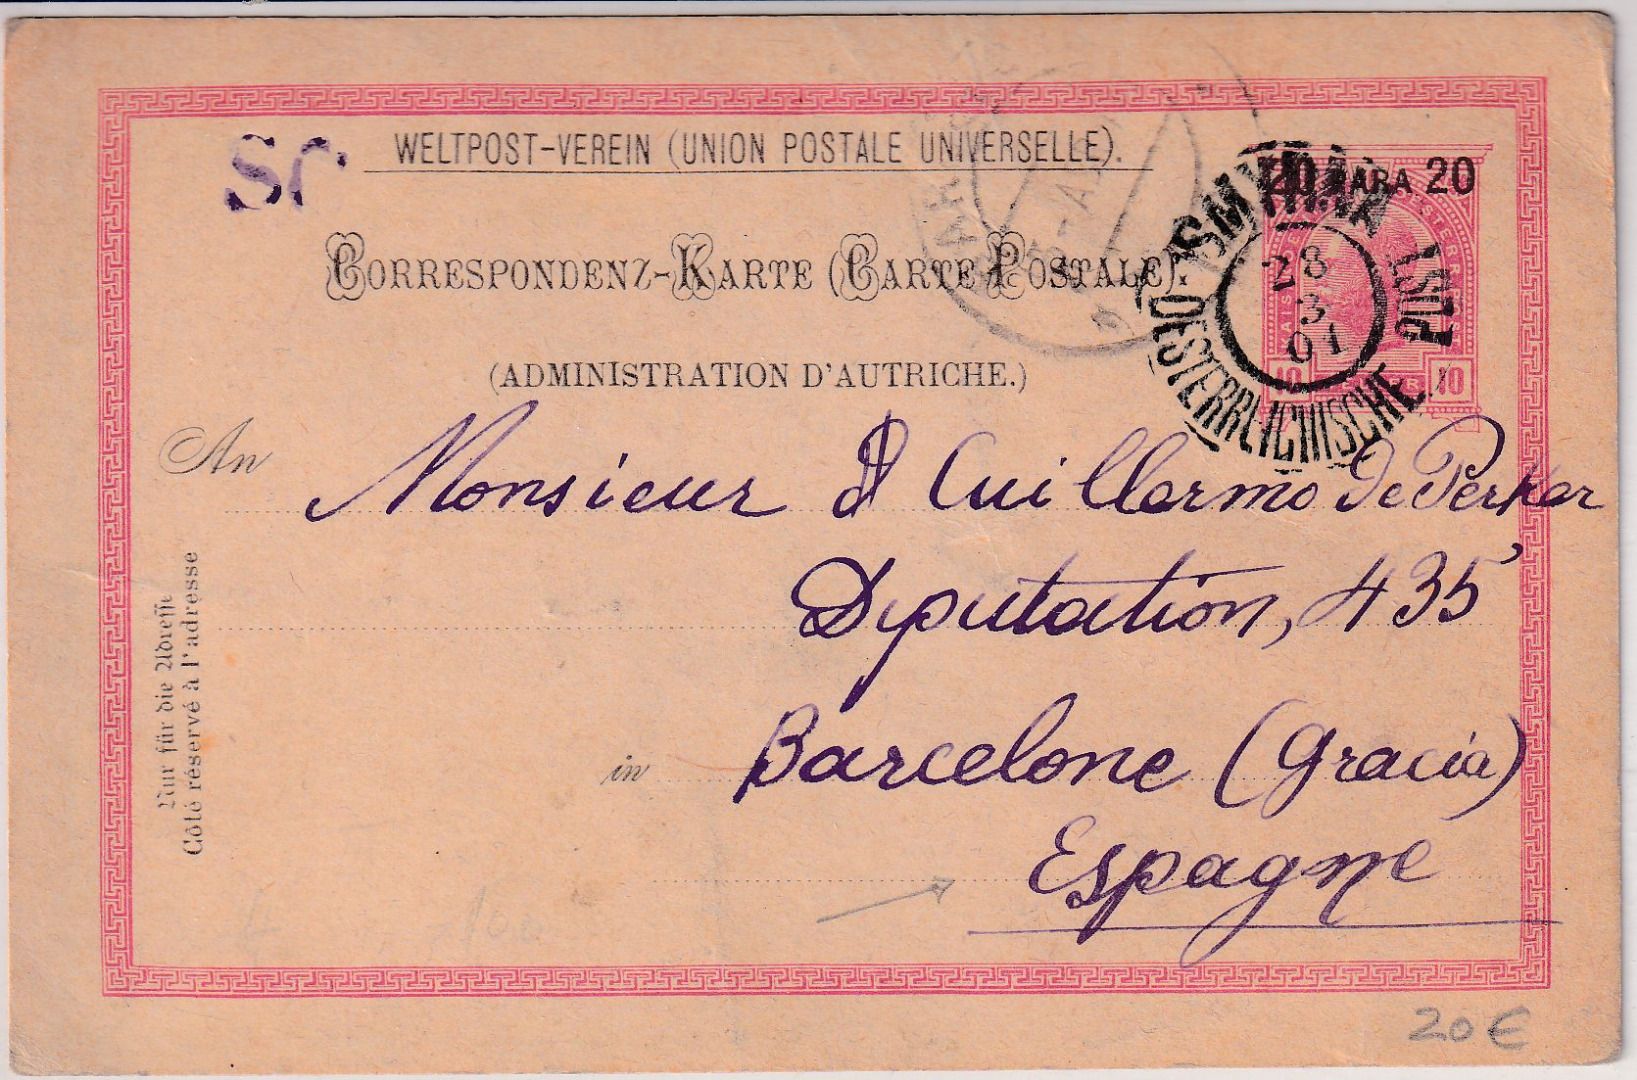 SC
WELTPOST-VEREIN (UNION POSTALE UNIVERSELLE).
20 PARA 20
CORRESPONDENZ-KARTE (CARTE POSTALE).
(ADMINISTRATION D'AUTRICHE.)
SMYRNA
28
3
01
OESTERREICHISCHE POST
10 10
An Monsieur D Guillermo De Perker
Diputation, 435
in Barcelone (Gracia)
Espagne
Nur für die Adresse
Côté réservé à l'adresse
20 €